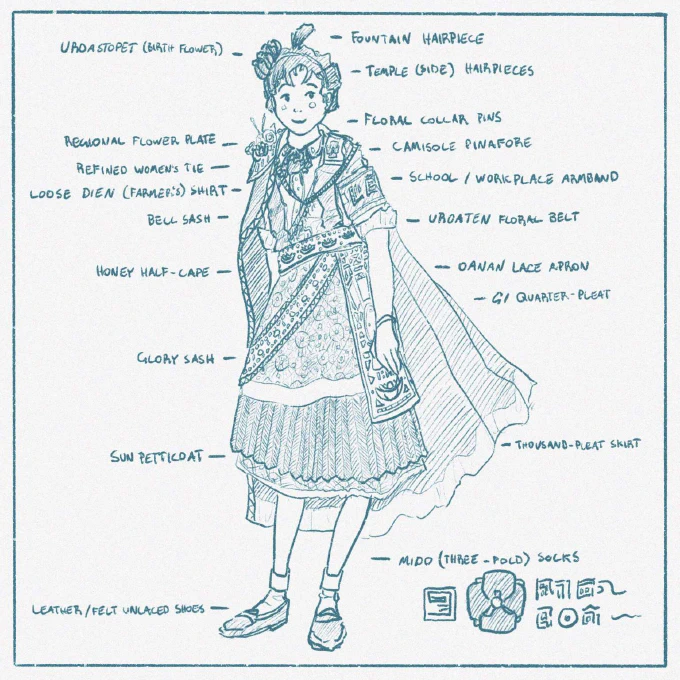 URDASTOPET (BIRTH FLOWER)
REGIONAL FLOWER PLATE
REFINED WOMEN'S TIE
LOOSE DIEN (FARMER'S) SHIRT
BELL SASH
HONEY HALF-CAPE
GLORY SASH
SUN PETTICOAT
LEATHER/FELT UNLACED SHOES
FOUNTAIN HAIRPIECE
TEMPLE (SIDE) HAIRPIECES
FLORAL COLLAR PINS
CAMISOLE PINAFORE
SCHOOL / WORKPLACE ARMBAND
URDATEN FLORAL BELT
OANAN LACE APRON
QUARTER-PLEAT
THOUSAND-PLEAT SKIRT
MIDO (THREE-FOLD) SOCKS